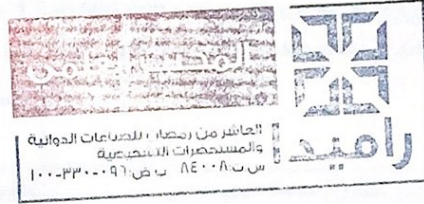 المكتب العلمي
راميدا
العاشر من رمضان للصناعات الدوائية
والمستحضرات التشخيصية
س ت: ٨٤٠٠٨ ب ض: ١٠٠-٣٣٠-٠٩٦